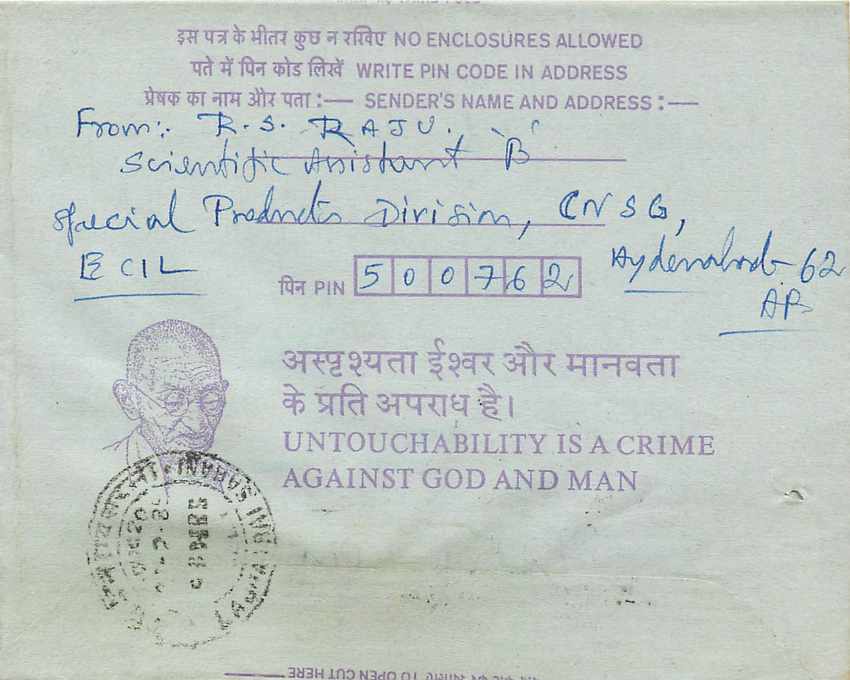 इस पत्र के भीतर कुछ न रखिए NO ENCLOSURES ALLOWED
पते में पिन कोड लिखें WRITE PIN CODE IN ADDRESS
प्रेषक का नाम और पता :— SENDER'S NAME AND ADDRESS :—
From:. R. S. RAJU.,
Scientific Assistant 'B'
Special Products Division, CNSG,
ECIL
Hyderabad-62
AP
पिन PIN 500762
अस्पृश्यता ईश्वर और मानवता
के प्रति अपराध है।
UNTOUCHABILITY IS A CRIME
AGAINST GOD AND MAN
SARANI
TO OPEN CUT HERE